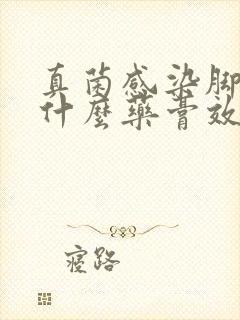 真菌感染脚
什麼藥膏效
寢路